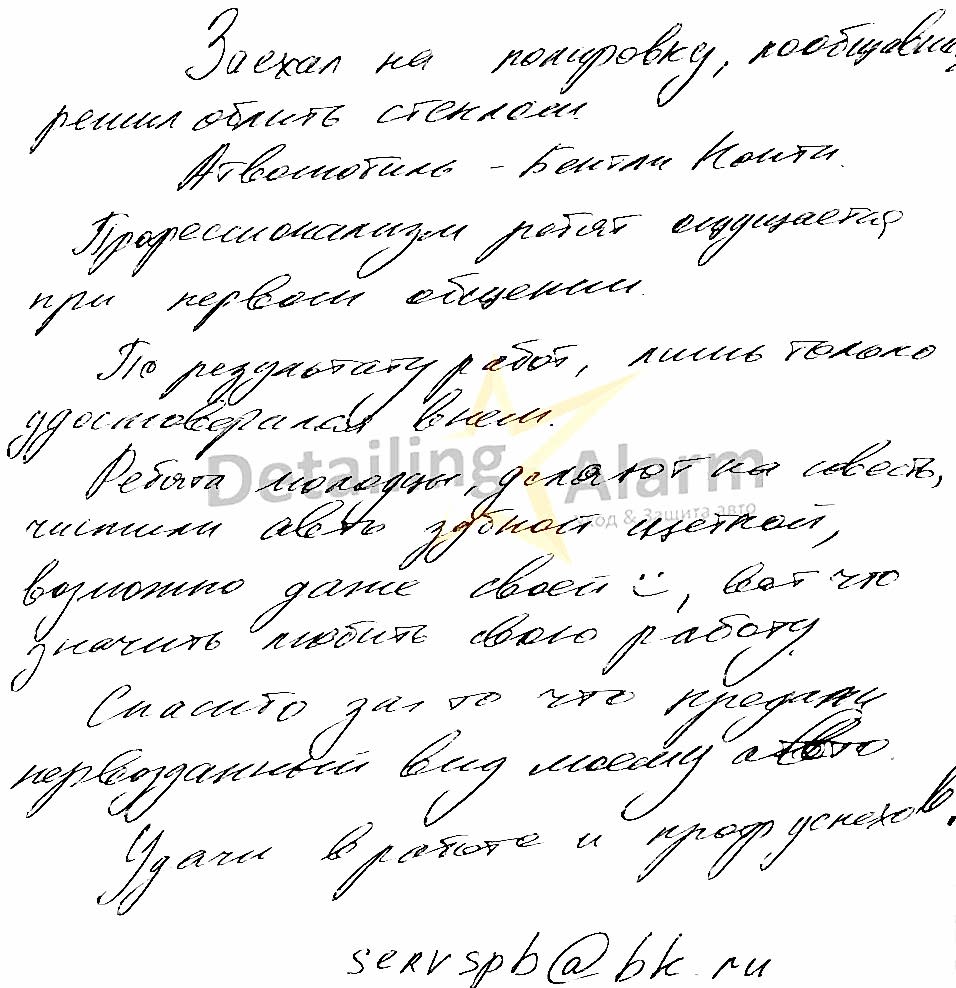 Заехал на полировку, пообщавшись
решил облить стеклом.
Атвомобиль - Бентли Конти.
Профессионализм ребят ощущается
при первом общении.
По результату работ, лишь только
удостоверился в нем.
Detailing Alarm
Уход & Защита авто
Ребята молодцы, делают на совесть,
чистили авто зубной щеткой,
возможно даже своей :), вот что
значить любить свою работу.
Спасибо за то что предали
первозданный вид моему авто.
Удачи в работе и проф успехов.
servspb@bk.ru